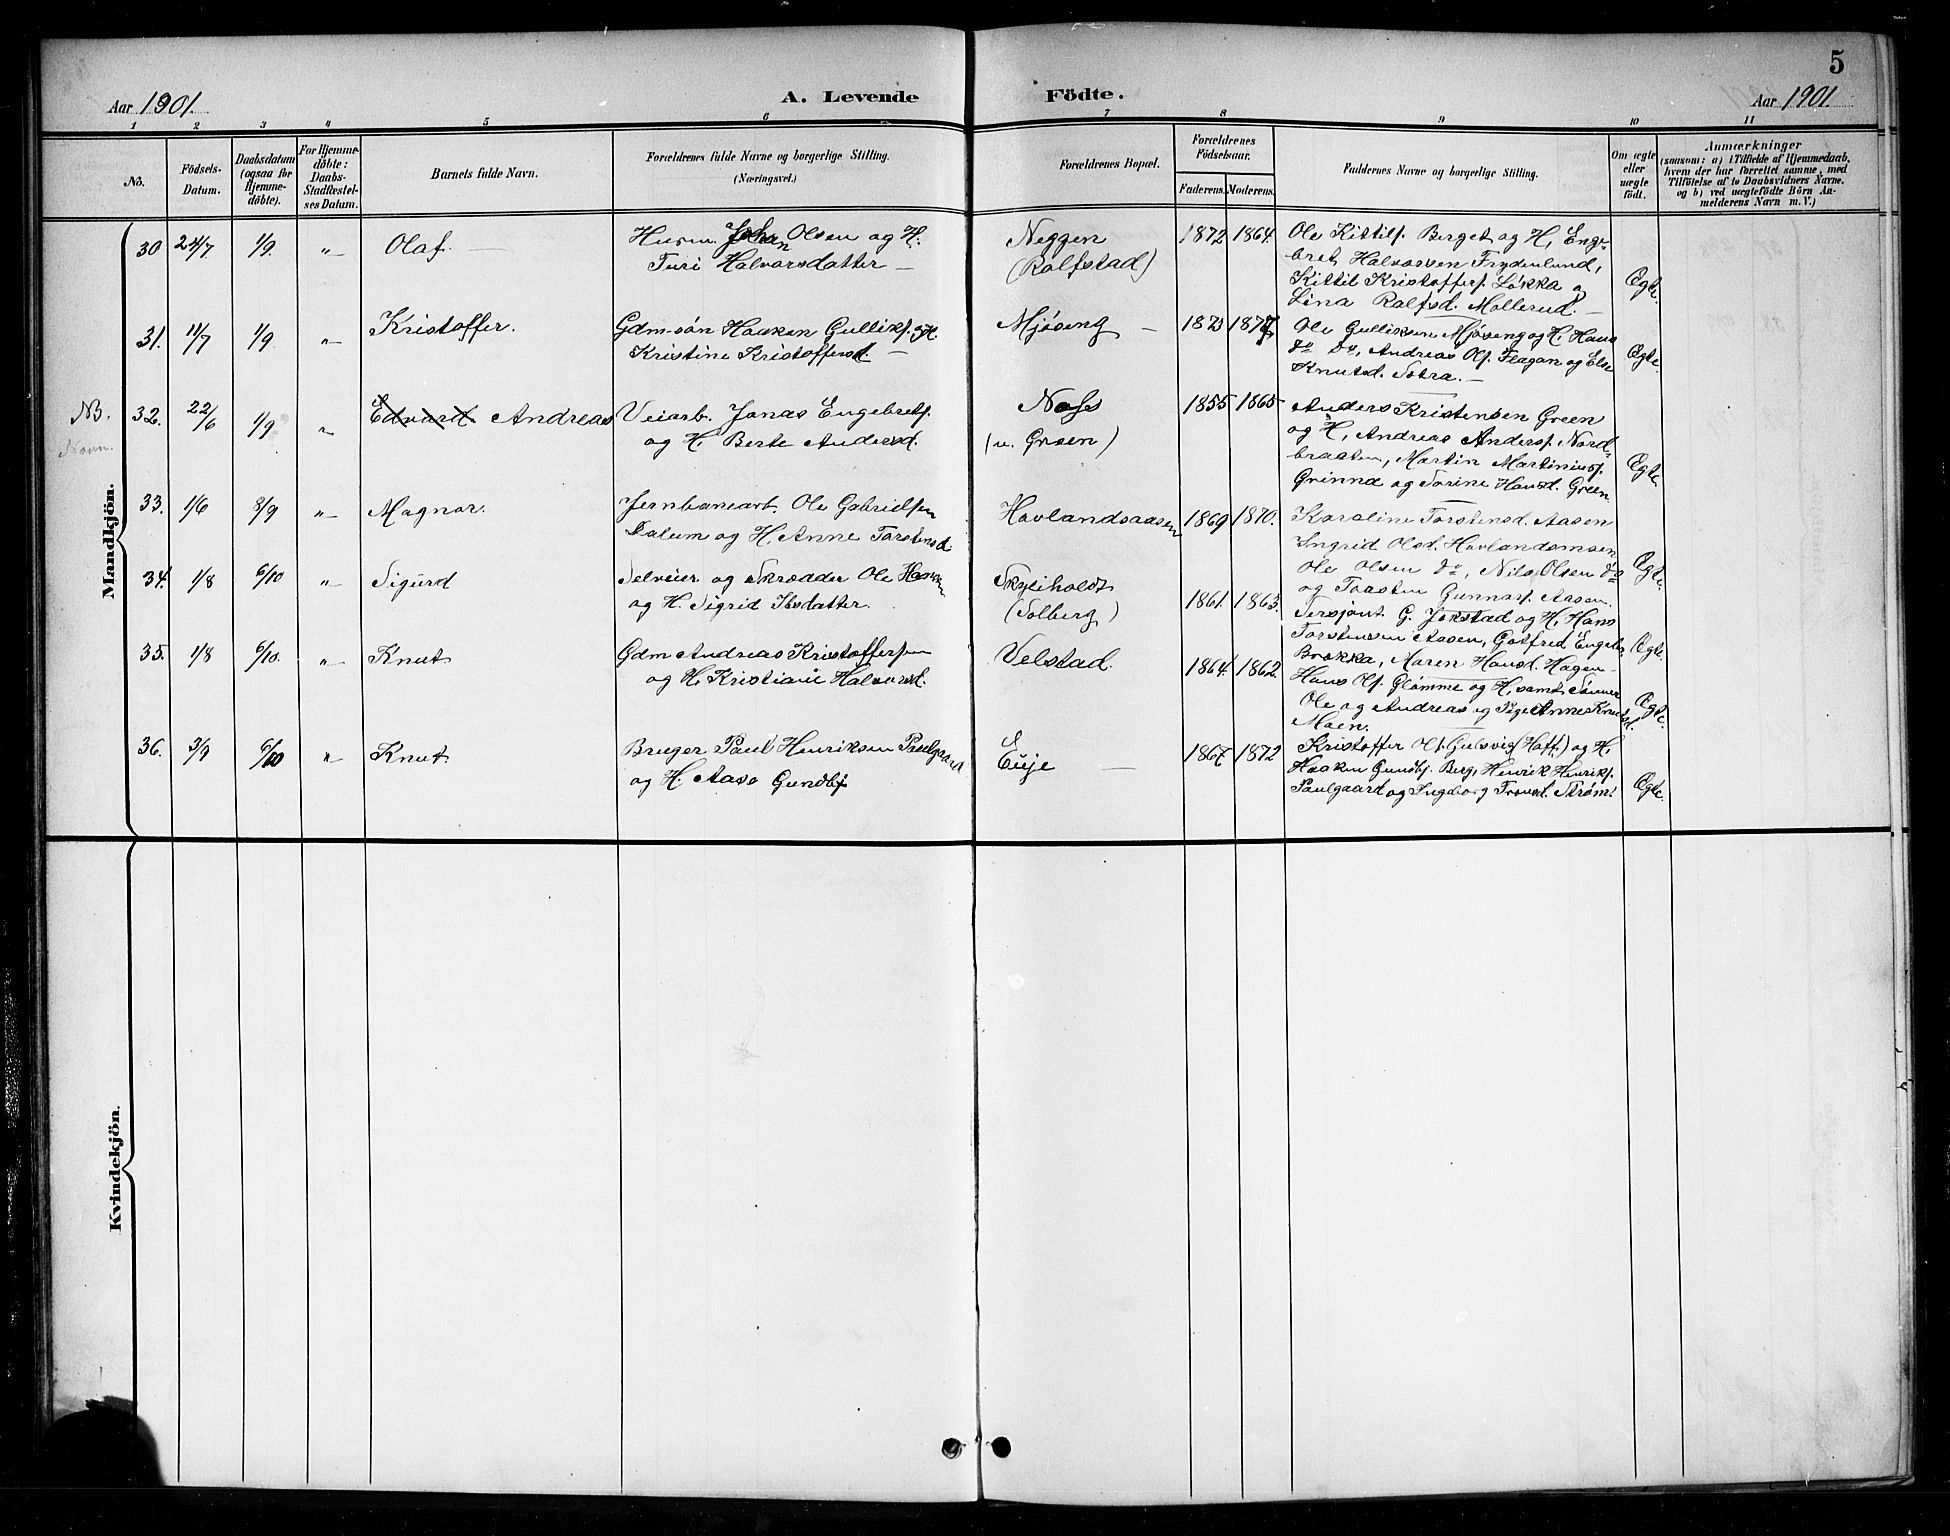 5
Aar 1901. A. Levende Födte. Aar 1901.
1 2 3 4 5 6 7 8 9 10 11
No.
Födsels-
Datum.
Daabsdatum
(ogsaa för
Hjemme-
döbte).
For Hjemme-
döbte:
Daabs-
Stadfæstel-
ses Datum.
Barnets fulde Navn.
Forældrenes fulde Navne og borgerlige Stilling.
(Næringsvei.)
Forældrenes Bopæl.
Forældrenes
Födselsaar.
Faderens. Moderens.
Faddernes Navne og borgerlige Stilling.
Om ægte
eller
uægte
födt.
Anmærkninger
(saasom: a) i Tilfælde af Hjemmedaab,
hvem der har forrettet samme, med
Tilföielse af to Daabsvidners Navne,
og b) ved uægtefödte Börn An-
melderens Navn m. V.)
Mandkjön.
30 24/7 1/9 „ Olaf.
Husm. Johan Olsen og H.
Turi Halvorsdatter
Neggen
(Ralfstad)
1872 1864.
Ole Kittils. Berget og H, Eng-
bret Halvorsen Frydenlund,
Kittil Kristoffers. Løkka og
Lina Ralfsd. Mollerud.
Ægte.
31. 11/7 1/9 „ Kristoffer.
Gdm-søn Haaken Gulliks. og H.
Kristine Kristoffersd.
Mjøseng
1873 1877
Ole Gulliksen Mjøseng og H, Hans
do Do, Andreas Ols. Flagan og Else
Knutsd. Sotra.
Ægte.
NB.
Navn.
32. 22/6 1/9 „ Edvard Andreas
Veiarb. Jonas Engebrets.
og H. Berte Andersd.
Næs
(u. Green)
1855 1865
Anders Kristensen Green
og H, Andreas Anders. Nord-
braaten, Martin Martinius.
Grinna og Torine Hansd. Green
Ægte.
33. 1/6 8/9 „ Magnar.
Jernbanearb. Ole Gabrielsen
Dalum og H. Anne Torstensd.
Hovlandsaasen
1869 1870.
Karoline Torstensd. Aasen
Ingrid Olsd. Hovlandsmoen
Ole Olsen do, Nils Olsen do
og Torsten Gunnars. Aasen.
Ægte.
34. 1/8 6/10 „ Sigurd
Selveier og Skrædder Ole Hansen
og H. Sigrid Ibsdatter.
Skjeiholdt
(Solberg)
1861. 1863.
Sersjant G. Jokstad og H, Hans
Torstensen Aasen, Gotfred Engebr.
Brakka, Maren Hansd. Hagen
Ægte.
35. 1/8 6/10. „ Knut
Gdm Andreas Kristoffersen
og H. Kristiane Halvorsd.
Velstad.
1864. 1862.
Hans Ols. Glømme og H, samt Sønner
Ole og Andreas og Pige Anne Knutsd.
Moen.
Ægte.
36. 3/9 6/10 „ Knut
Bruger Paul Henriksen Paulgaard
og H. Aase Gundbj.
Euje
1867 1872
Kristoffer Ols. Gulsvig (Haft.) og H,
Haaken Gundbj. Berg, Henrik Henriks.
Paulgaard og Ingeborg Trondsd. Strøm.
Ægte.
Kvindekjön.